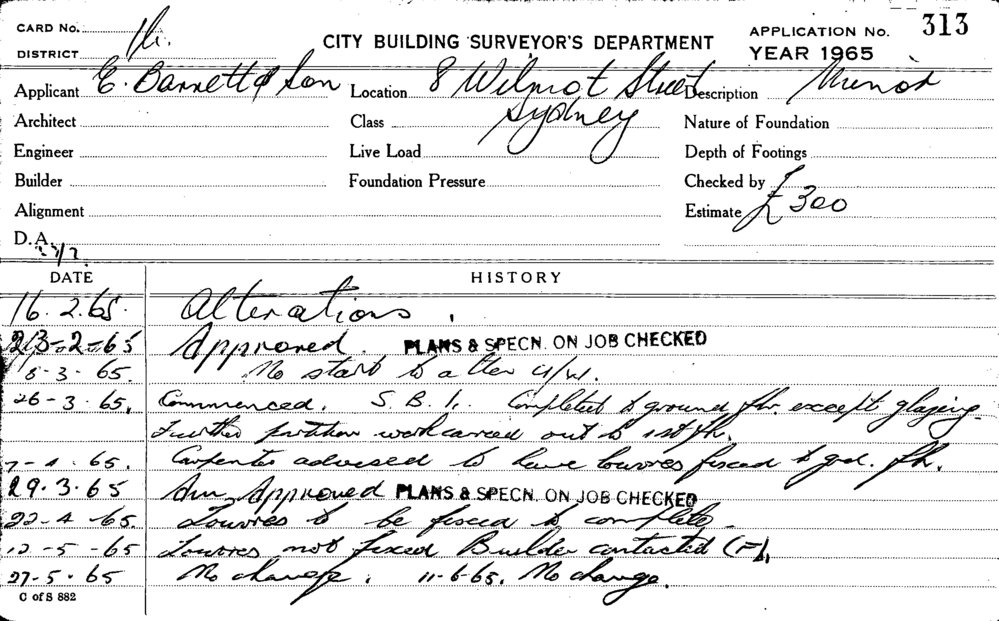 CARD No.
DISTRICT
CITY BUILDING SURVEYOR'S DEPARTMENT
APPLICATION No. 313
YEAR 1965
Applicant E. Barrett & Son Location 8 Wilmot Street Sydney Description Minor
Architect Class Nature of Foundation
Engineer Live Load Depth of Footings
Builder Foundation Pressure Checked by
Alignment Estimate £300
D.A.
DATE HISTORY
16.2.65. Alterations.
23-2-65 Approved. PLANS & SPECN. ON JOB CHECKED
8-3-65. No start to alter
26-3-65. Commenced. S.B.I. Completed to ground flr. except glazing
Further partition work carried out to 1st flr.
65. Carpenter advised to have louvres fixed to grd. flr.
29.3.65 Am. Approved PLANS & SPECN. ON JOB CHECKED
22-4-65. Louvres to be fixed to complete
12-5-65 Louvres not fixed Builder contacted
27-5-65 No change. 11-6-65. No change.
C of S 882